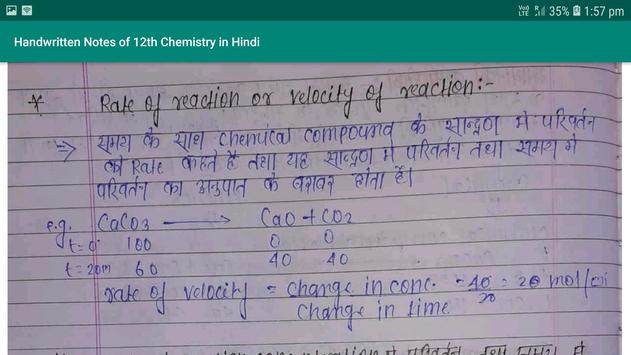 Vo) LTE R 35% 1:57 pm
Handwritten Notes of 12th Chemistry in Hindi
* Rate of reaction or velocity of reaction:-
⇒ समय के साथ chemical compound के सान्द्रण मे परिवर्तन
को Rate कहते है तथा यह सान्द्रण मे परिवर्तन तथा समय मे
परिवर्तन का अनुपात के बराबर होता है।
e.g. CaCO3 ⟶ CaO + CO2
t=0 100 0 0
t=20m 60 40 40
rate of velocity = change in conc. = 40 = 20 mol/
Change in time 20